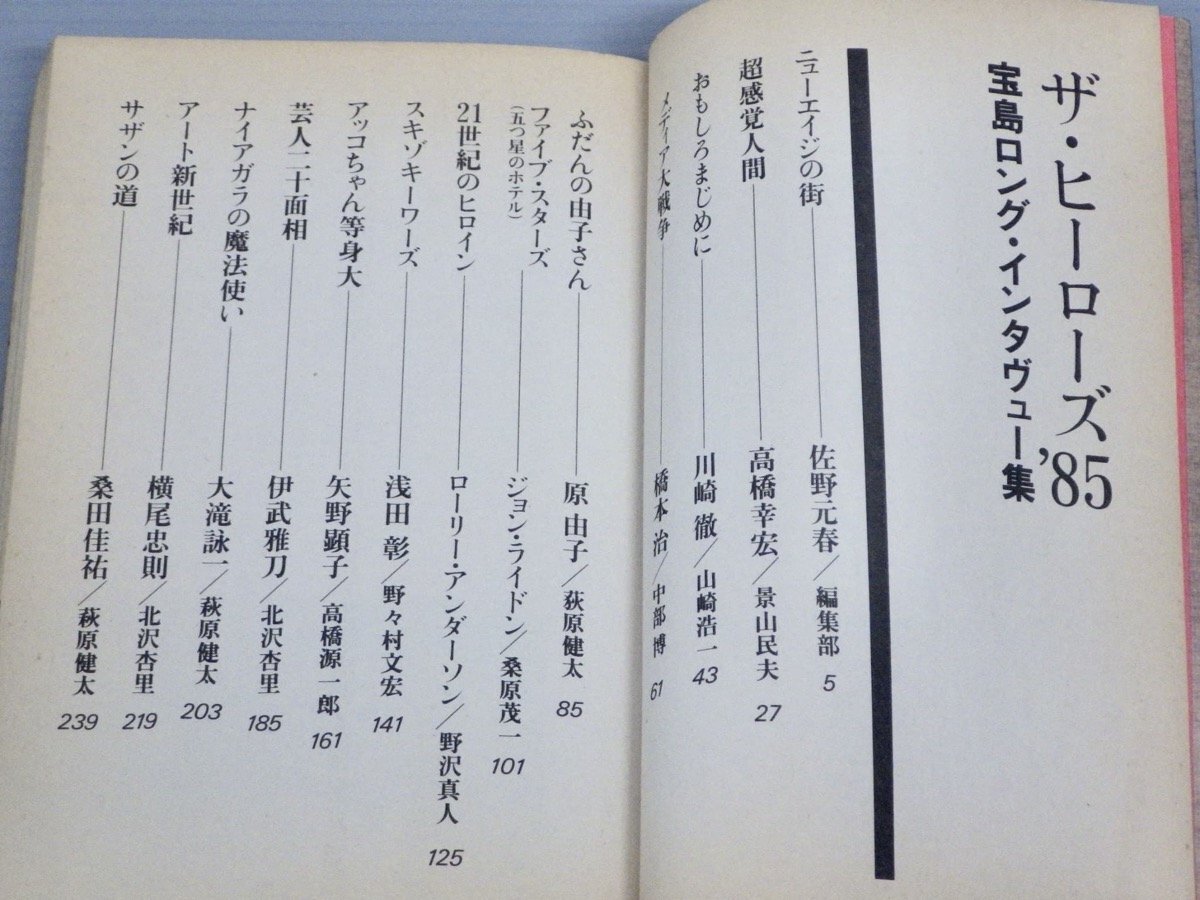 ザ・ヒーローズ'85
宝島ロング・インタヴュー集
ニューエイジの街――佐野元春／編集部 5
超感覚人間――高橋幸宏／景山民夫 27
おもしろまじめに――川崎 徹／山崎浩一 43
メディア大戦争――橋本 治／中部 博 61
ふだんの由子さん――原 由子／萩原健太 85
ファイブ・スターズ――ジョン・ライドン／桑原茂一 101
（五つ星のホテル）
21世紀のヒロイン――ローリー・アンダーソン／野沢真人 125
スキゾキーワーズ――浅田 彰／野々村文宏 141
アッコちゃん等身大――矢野顕子／高橋源一郎 161
芸人二十面相――伊武雅刀／北沢杏里 185
ナイアガラの魔法使い――大滝詠一／萩原健太 203
アート新世紀――横尾忠則／北沢杏里 219
サザンの道――桑田佳祐／萩原健太 239